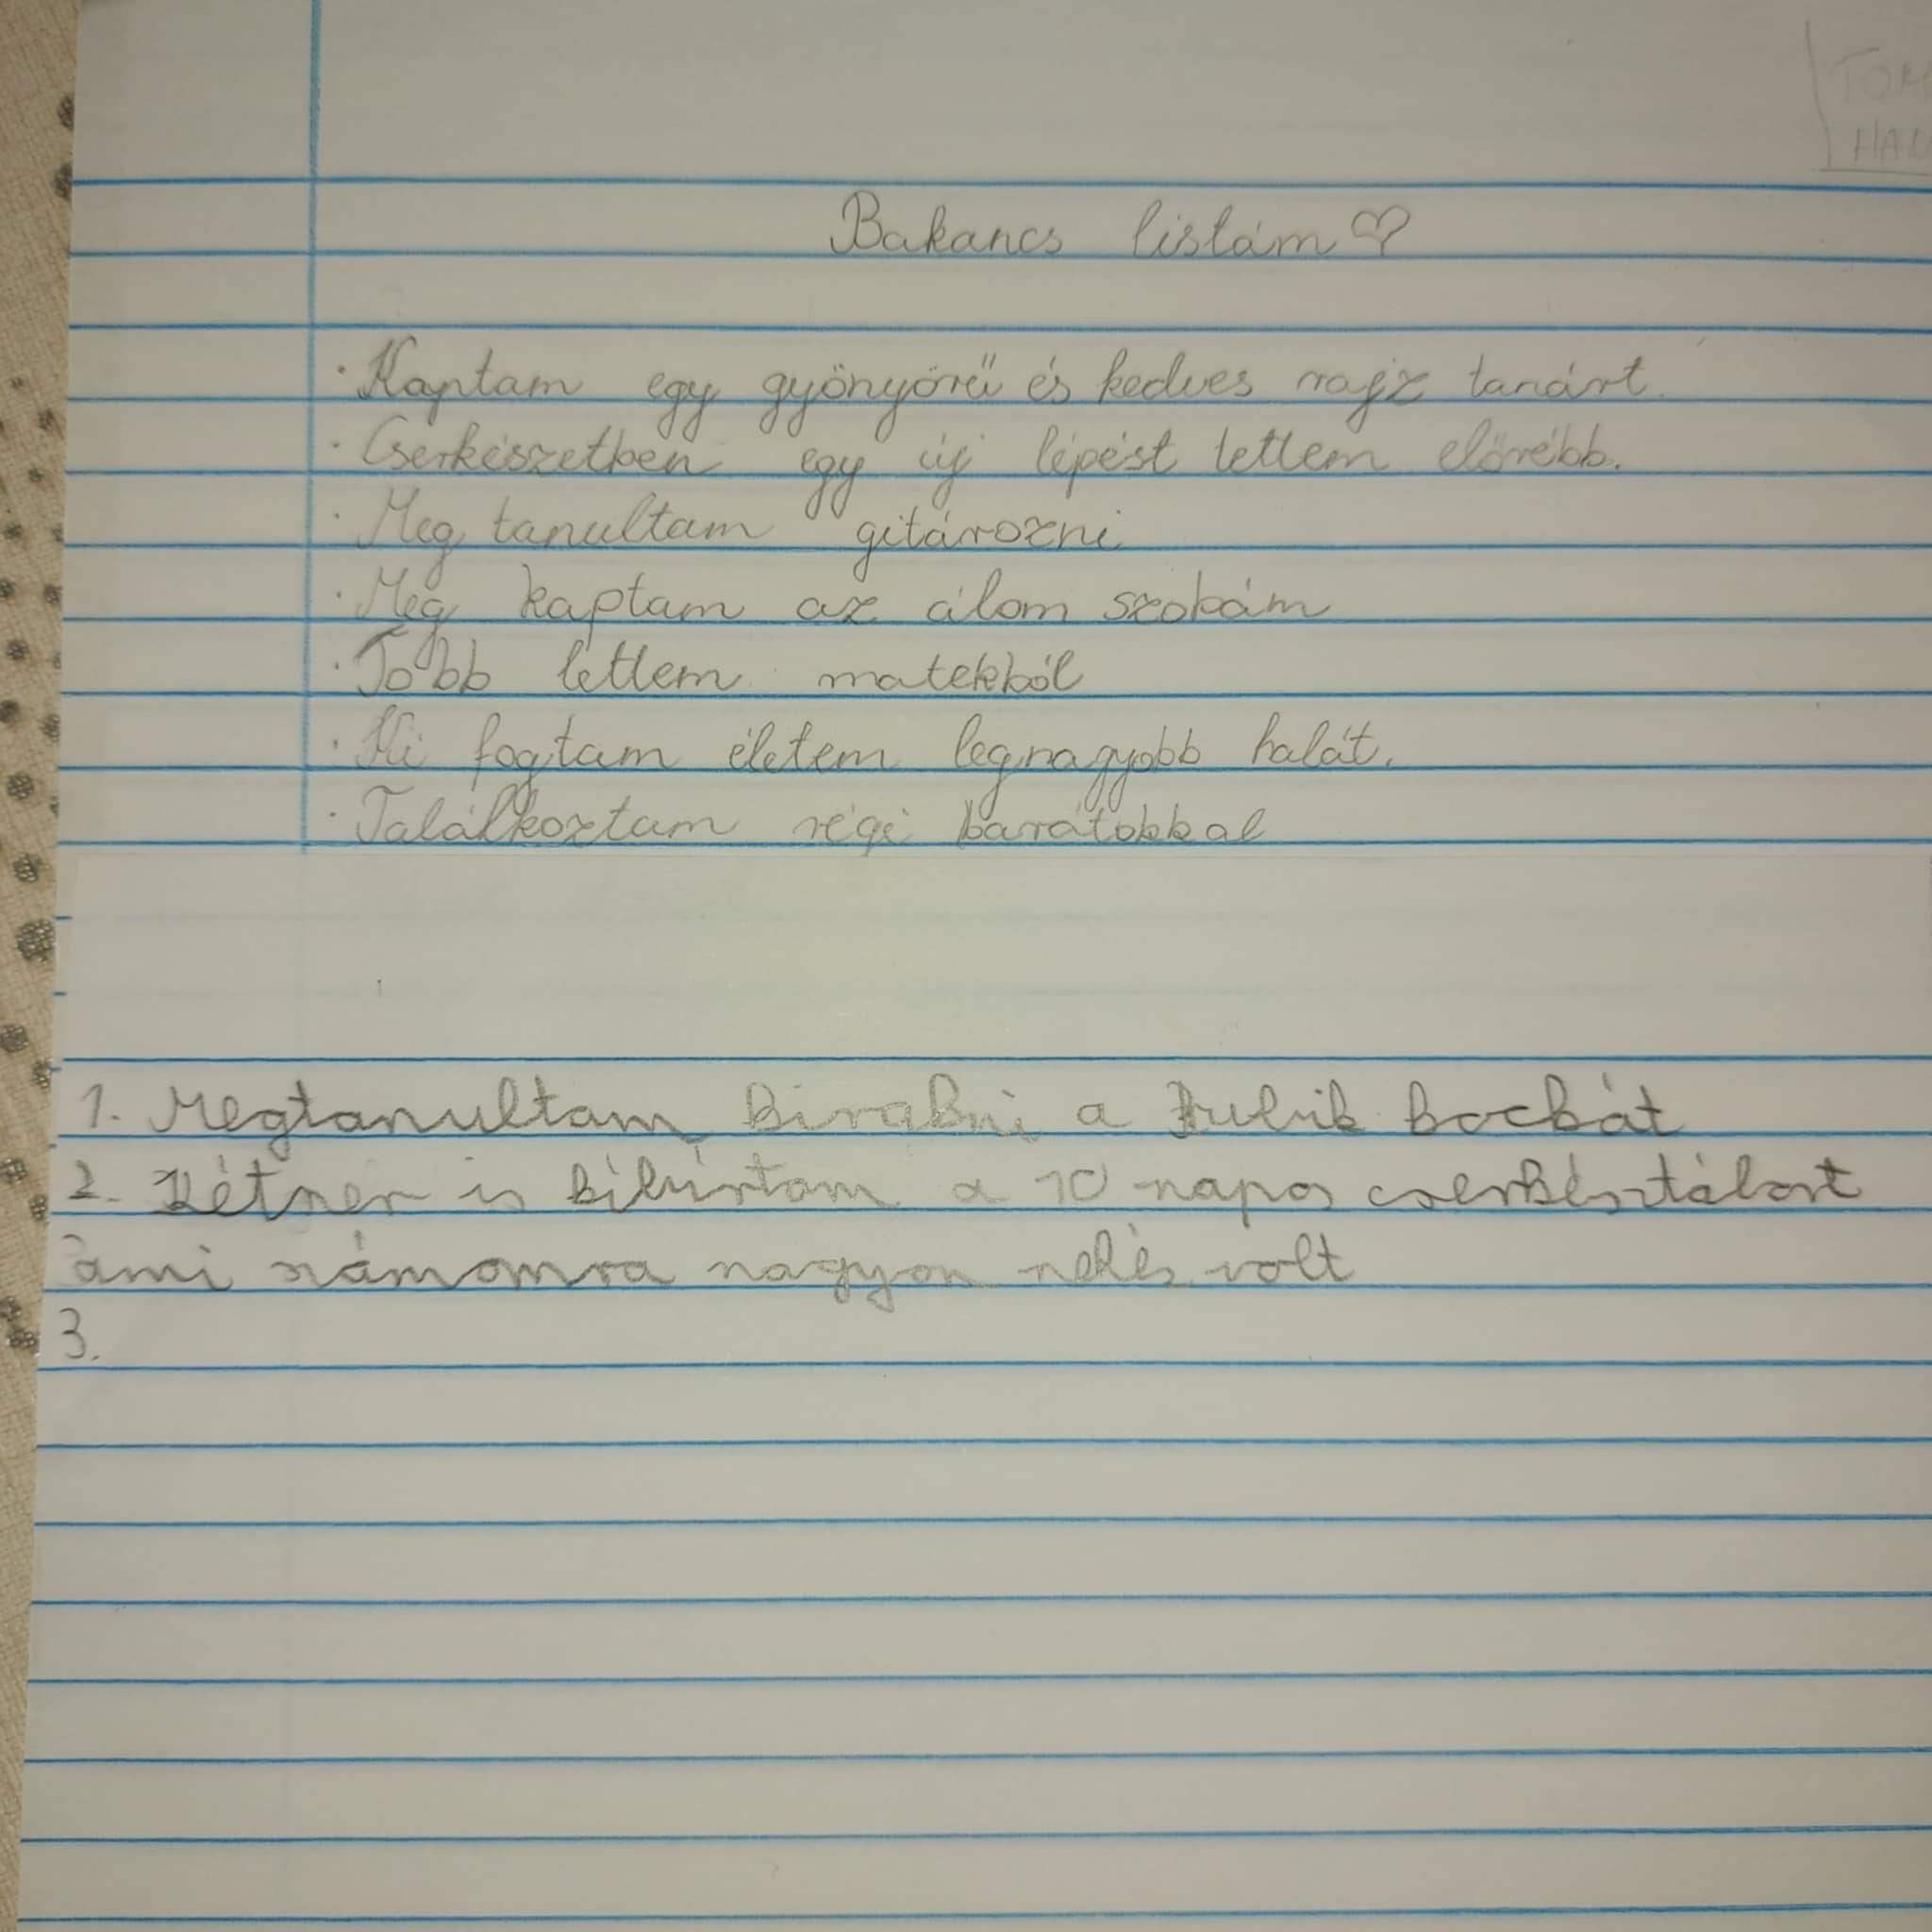 TOM
HAU
Bakancs listám ♡
· Kaptam egy gyönyörű és kedves rajz tanárt.
· Cserkészetben egy új lépést tettem előrébb.
· Meg tanultam gitározni
· Meg kaptam az álom szobám
· Jobb lettem matekból
· Ki fogtam életem legnagyobb halát.
· Találkoztam régi barátokkal
1. Megtanultam kirakni a Rubik kockát
2. Kétszer is kibírtam a 10 napos cserkésztábort
ami számomra nagyon nehéz volt
3.